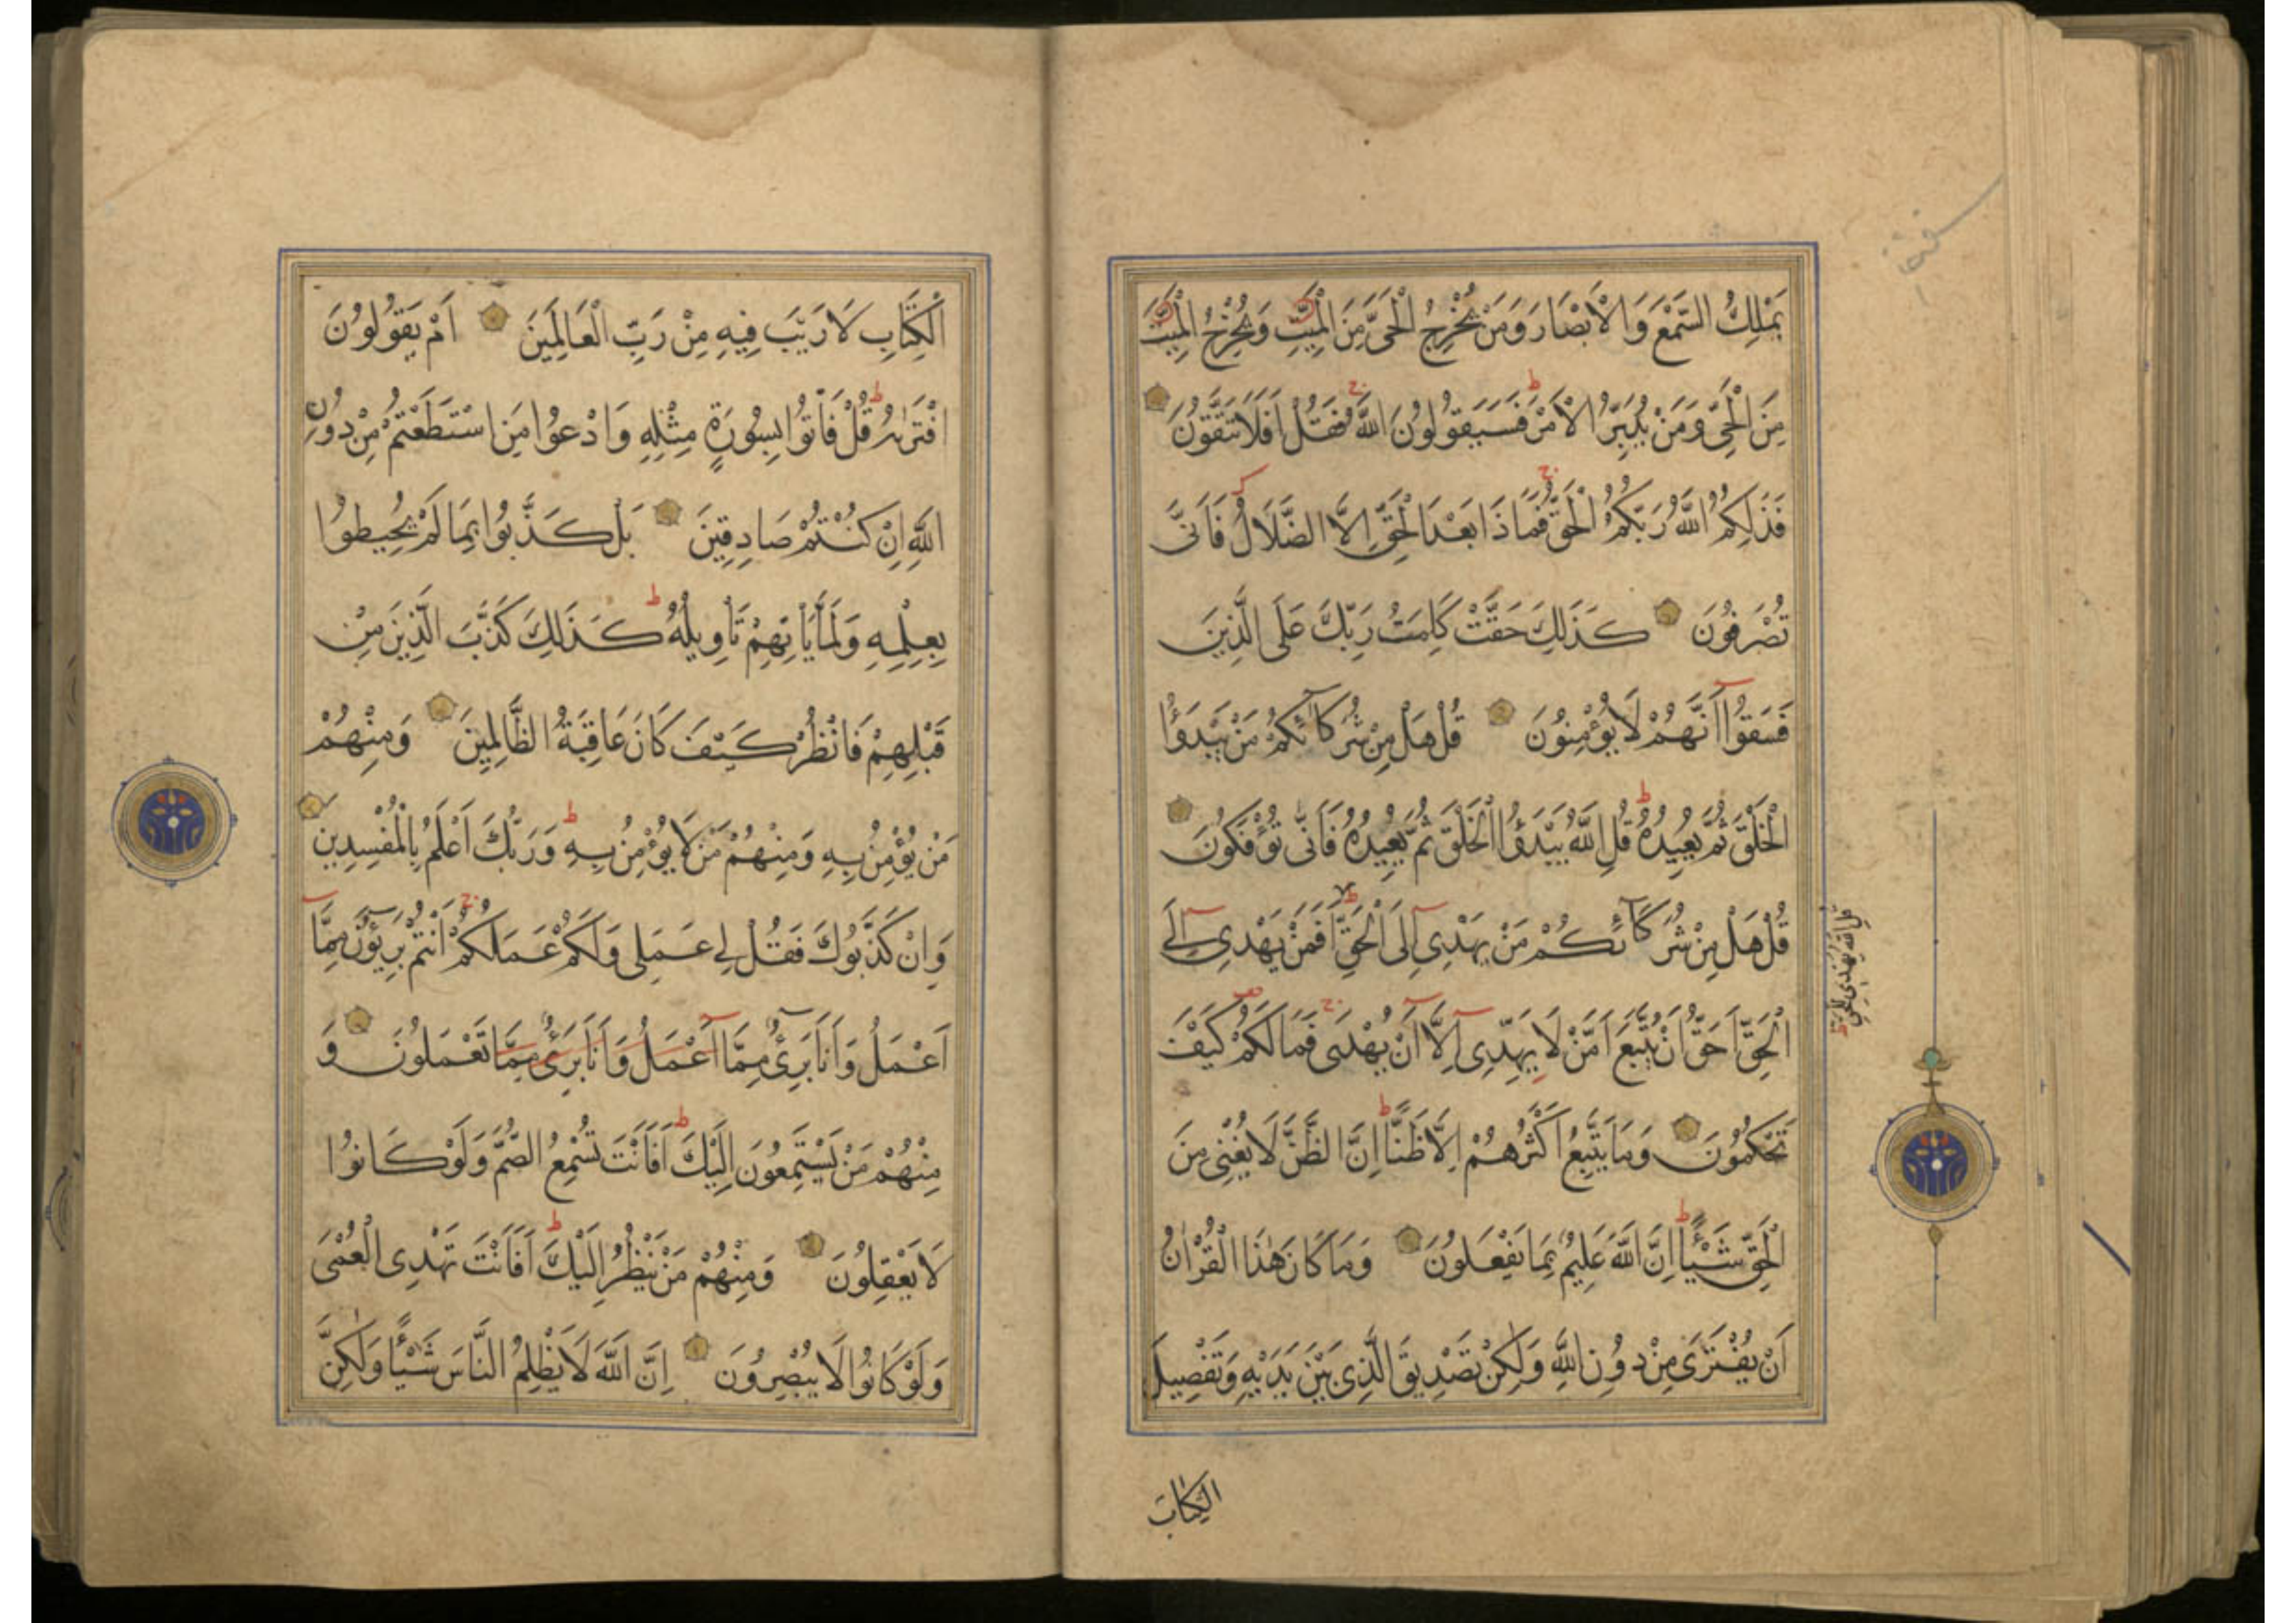 يَمْلِكُ السَّمْعَ وَالْاَبْصَارَ وَمَنْ يُخْرِجُ الْحَىَّ مِنَ الْمَيِّتِ وَيُخْرِجُ الْمَيِّتَ
مِنَ الْحَىِّ وَمَنْ يُدَبِّرُ الْاَمْرَ فَسَيَقُولُونَ اللّٰهُ فَقُلْ اَفَلَا تَتَّقُونَ
فَذٰلِكُمُ اللّٰهُ رَبُّكُمُ الْحَقُّ فَمَاذَا بَعْدَ الْحَقِّ اِلَّا الضَّلَالُ فَاَنّٰى
تُصْرَفُونَ كَذٰلِكَ حَقَّتْ كَلِمَتُ رَبِّكَ عَلَى الَّذِينَ
فَسَقُوٓا اَنَّهُمْ لَا يُؤْمِنُونَ قُلْ هَلْ مِنْ شُرَكَآئِكُمْ مَنْ يَبْدَؤُا
الْخَلْقَ ثُمَّ يُعِيدُهُ قُلِ اللّٰهُ يَبْدَؤُا الْخَلْقَ ثُمَّ يُعِيدُهُ فَاَنّٰى تُؤْفَكُونَ
قُلْ هَلْ مِنْ شُرَكَآئِكُمْ مَنْ يَهْدِىٓ اِلَى الْحَقِّ اَفَمَنْ يَهْدِىٓ اِلَى
الْحَقِّ اَحَقُّ اَنْ يُتَّبَعَ اَمَّنْ لَا يَهِدِّىٓ اِلَّآ اَنْ يُهْدٰى فَمَا لَكُمْ كَيْفَ
تَحْكُمُونَ وَمَا يَتَّبِعُ اَكْثَرُهُمْ اِلَّا ظَنًّا اِنَّ الظَّنَّ لَا يُغْنِى مِنَ
الْحَقِّ شَيْـًٔا اِنَّ اللّٰهَ عَلِيمٌ بِمَا يَفْعَلُونَ وَمَا كَانَ هٰذَا الْقُرْاٰنُ
اَنْ يُفْتَرٰى مِنْ دُونِ اللّٰهِ وَلٰكِنْ تَصْدِيقَ الَّذِى بَيْنَ يَدَيْهِ وَتَفْصِيلَ
الكِتَابَ
قُلِ اللّٰهُ يَهْدِى لِلْحَقِّ
الْكِتَابِ لَا رَيْبَ فِيهِ مِنْ رَبِّ الْعَالَمِينَ اَمْ يَقُولُونَ
افْتَرٰىهُ قُلْ فَأْتُوا بِسُورَةٍ مِثْلِهِ وَادْعُوا مَنِ اسْتَطَعْتُمْ مِنْ دُونِ
اللّٰهِ اِنْ كُنْتُمْ صَادِقِينَ بَلْ كَذَّبُوا بِمَا لَمْ يُحِيطُوا
بِعِلْمِهِ وَلَمَّا يَأْتِهِمْ تَأْوِيلُهُ كَذٰلِكَ كَذَّبَ الَّذِينَ مِنْ
قَبْلِهِمْ فَانْظُرْ كَيْفَ كَانَ عَاقِبَةُ الظَّالِمِينَ وَمِنْهُمْ
مَنْ يُؤْمِنُ بِهِ وَمِنْهُمْ مَنْ لَا يُؤْمِنُ بِهِ وَرَبُّكَ اَعْلَمُ بِالْمُفْسِدِينَ
وَاِنْ كَذَّبُوكَ فَقُلْ لِى عَمَلِى وَلَكُمْ عَمَلُكُمْ اَنْتُمْ بَرِيٓؤُنَ مِمَّآ
اَعْمَلُ وَاَنَا بَرِىٓءٌ مِمَّآ اَعْمَلُ وَاَنَا بَرِىٓءٌ مِمَّا تَعْمَلُونَ وَ
مِنْهُمْ مَنْ يَسْتَمِعُونَ اِلَيْكَ اَفَاَنْتَ تُسْمِعُ الصُّمَّ وَلَوْ كَانُوا
لَا يَعْقِلُونَ وَمِنْهُمْ مَنْ يَنْظُرُ اِلَيْكَ اَفَاَنْتَ تَهْدِى الْعُمْىَ
وَلَوْ كَانُوا لَا يُبْصِرُونَ اِنَّ اللّٰهَ لَا يَظْلِمُ النَّاسَ شَيْـًٔا وَلٰكِنَّ